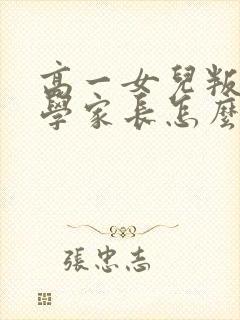 高一女兒叛
學家長怎麼
張忠志